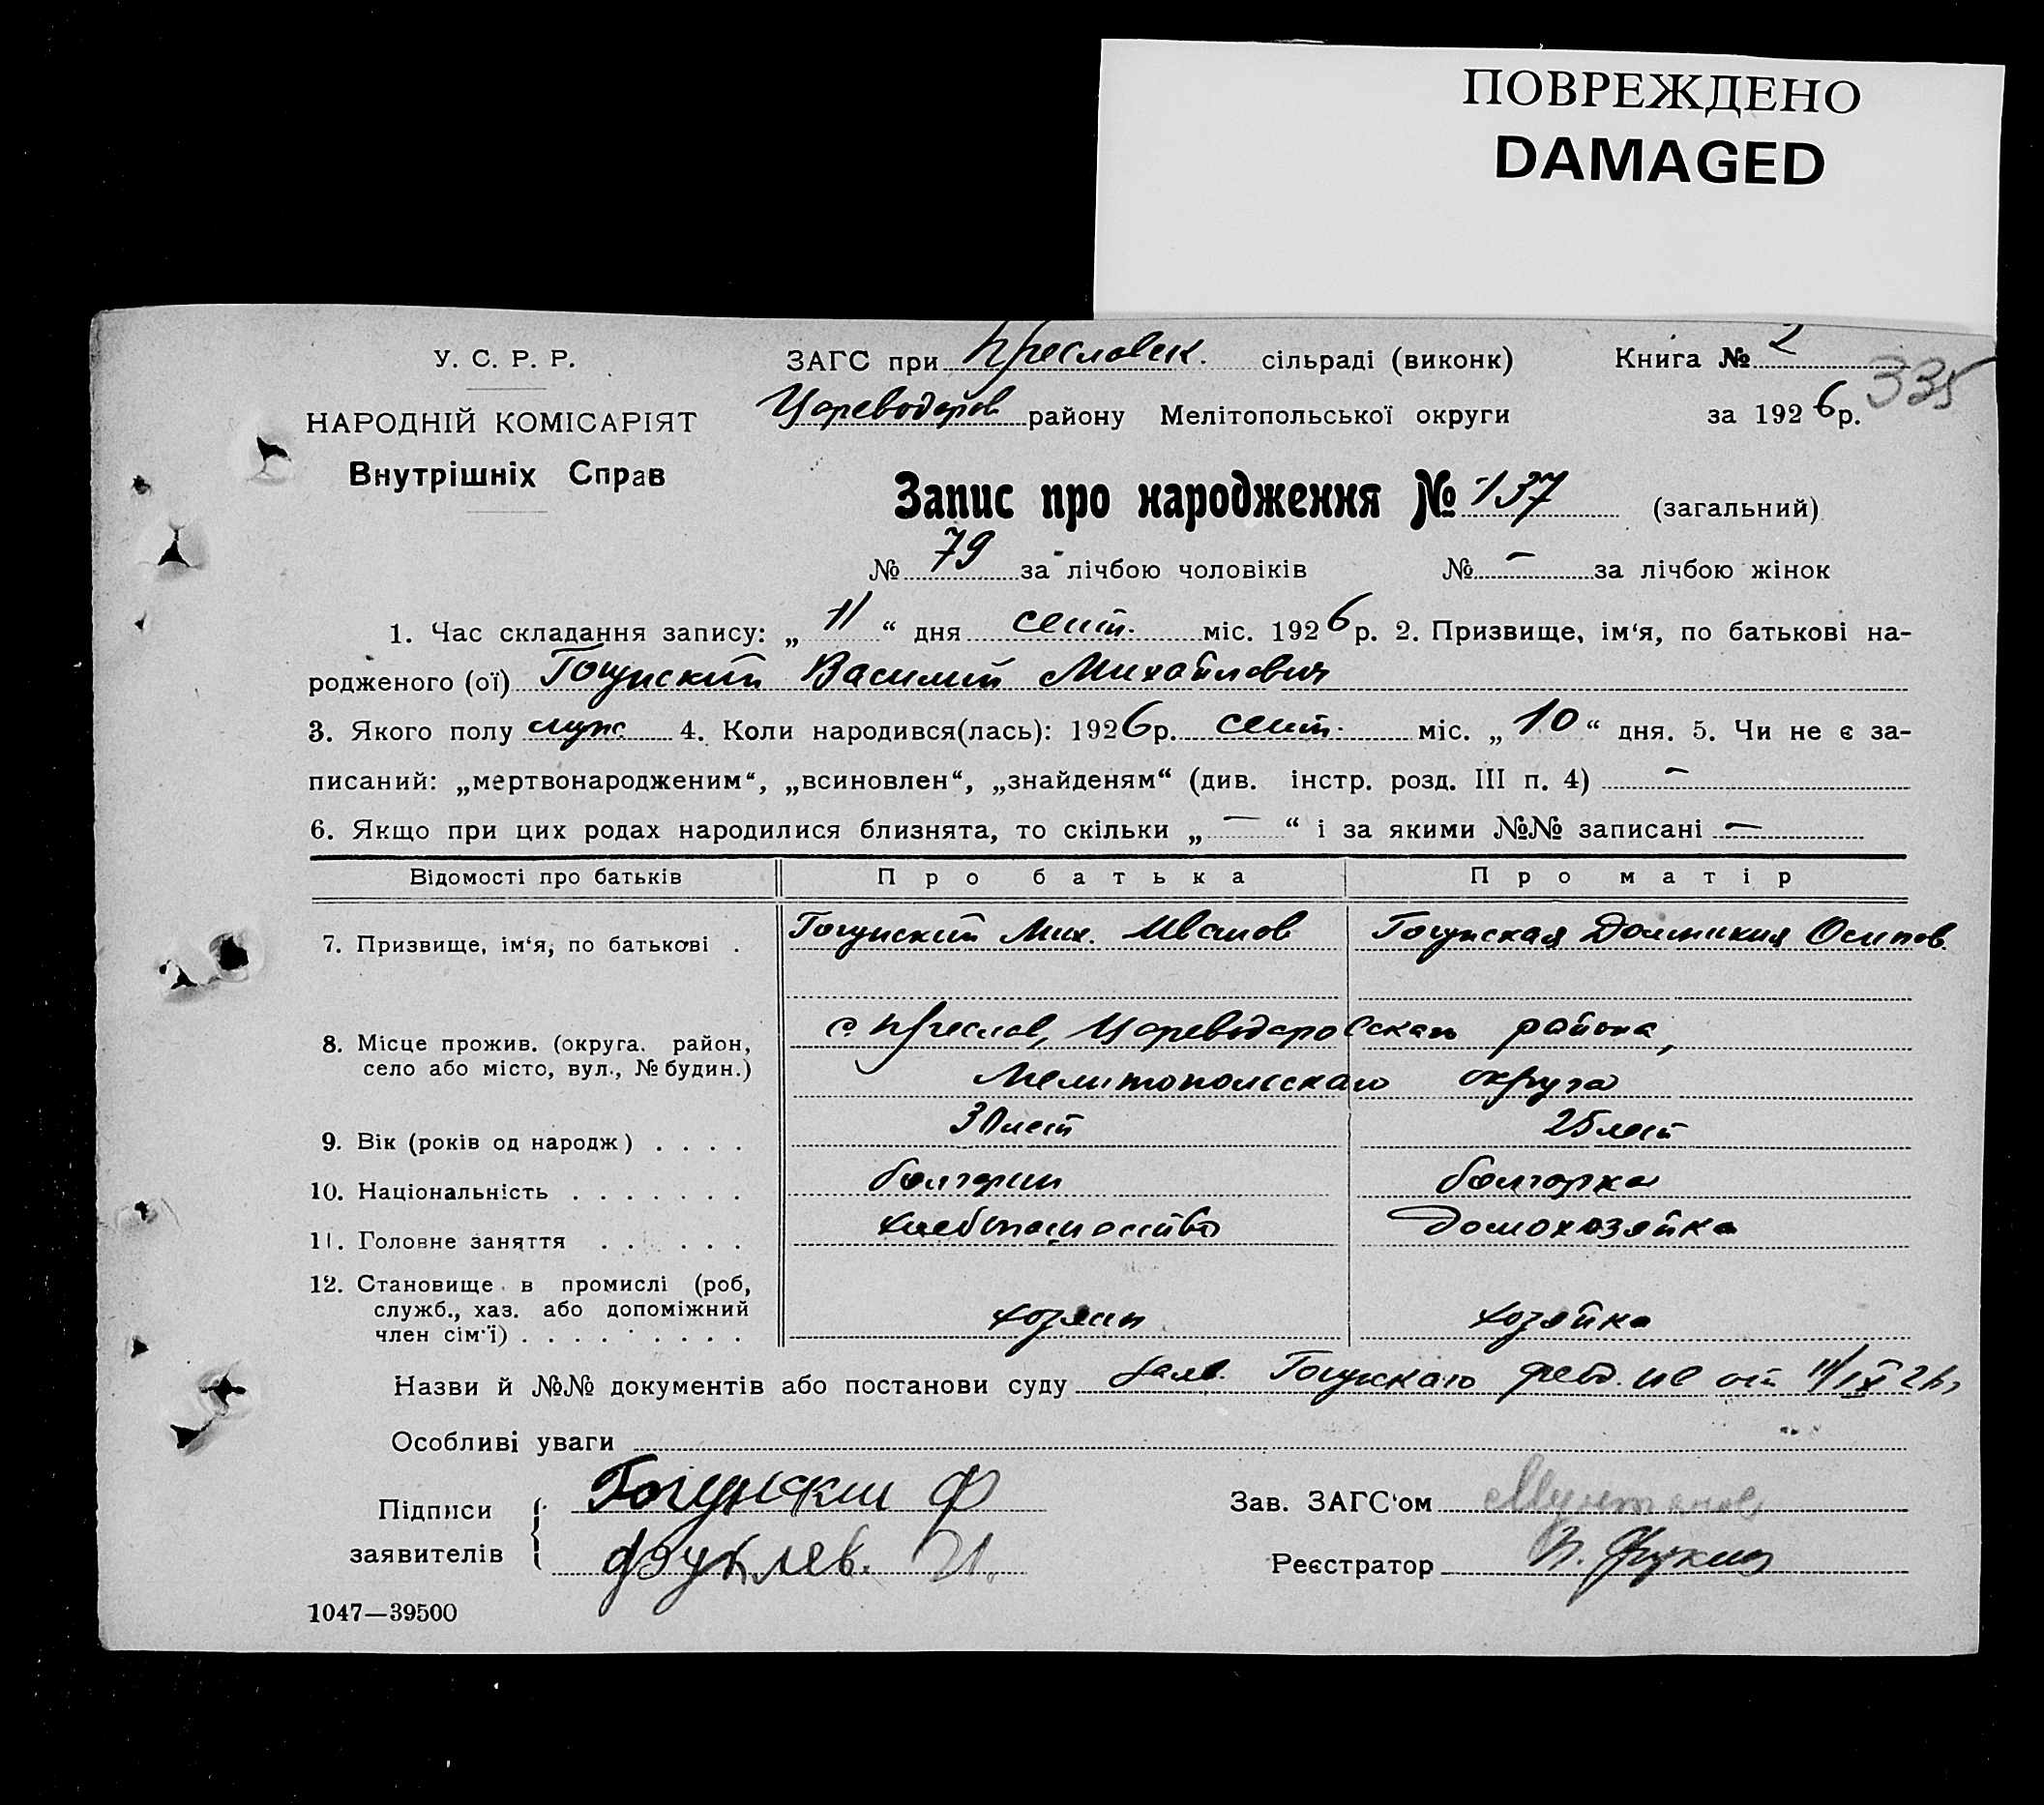 ПОВРЕЖДЕНО
DAMAGED
У. С. Р. Р.
ЗАГС при Преславск. сільраді (виконк) Книга № 2
335
НАРОДНІЙ КОМІСАРІЯТ
Цареводаров району Мелітопольської округи за 1926 р.
Внутрішніх Справ
Запис про народження № 137 (загальний)
№ 79 за лічбою чоловіків № — за лічбою жінок
1. Час складання запису: „ 11 “ дня сент. міс. 1926 р. 2. Призвище, ім‘я, по батькові на-
родженого (ої) Гогунский Василий Михайлович
3. Якого полу муж. 4. Коли народився(лась): 1926 р. сент. міс. „ 10 “ дня. 5. Чи не є за-
писаний: „мертвонародженим“, „всиновлен“, „знайденям“ (див. інстр. розд. III п. 4) —
6. Якщо при цих родах народилися близнята, то скільки „ — “ і за якими №№ записані —
Відомості про батьків Про батька Про матір
7. Призвище, ім‘я, по батькові . Гогунский Мих. Иванов Гогунская Домникия Осипов.
8. Місце прожив. (округа. район, село або місто, вул., № будин.) с. Преслав, Цареводаровскаго района,
Мелитопольскаго округа
9. Вік (років од народж) . . . . 30 лет 25 лет
10. Національність . . . . . . . болгарин болгарка
11. Головне заняття . . . . . . хлебопашество домохозяйка
12. Становище в промислі (роб,
служб., хаз. або допоміжний
член сім‘ї) . . . . . . . . . хозяин хозяйка
Назви й №№ документів або постанови суду заяв. Гогунскаго от 11/IX 26 г.
Особливі уваги
Підписи
заявителів
Гогунский Ф
И.
Зав. ЗАГС‘ом
Реєстратор
1047—39500